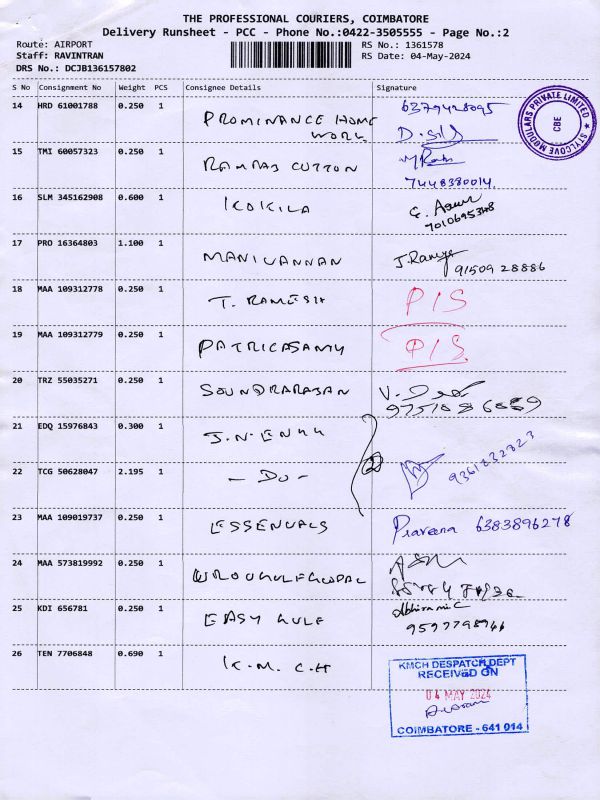 THE PROFESSIONAL COURIERS, COIMBATORE
Delivery Runsheet - PCC - Phone No.:0422-3505555 - Page No.:2
Route: AIRPORT
RS No.: 1361578
Staff: RAVINTRAN
RS Date: 04-May-2024
DRS No.: DCJB136157802
S No Consignment No Weight PCS Consignee Details Signature
14 HRD 61001788 0.250 1 PROMINANCE HOME WORK 6379428095
STYLCOVE MODULARS PRIVATE LIMITED
CBE
15 TMI 60057323 0.250 1 RAMRAJ CUTTON
7448380014.
16 SLM 345162908 0.600 1 KOKILA
7010695348
17 PRO 16364803 1.100 1 MANIVANNAN J. Ramya
91509 28886
18 MAA 109312778 0.250 1 T. RAMESH P/S
19 MAA 109312779 0.250 1 PATRICASAMY P/S
20 TRZ 55035271 0.250 1 SOUNDRARAJAN
21 EDQ 15976843 0.300 1
22 TCG 50628047 2.195 1 - DO - 9361832823
23 MAA 109019737 0.250 1 ESSENUALS Praveena 6383896278
24 MAA 573819992 0.250 1
25 KDI 656781 0.250 1 EASY Abhirami C
26 TEN 7706848 0.690 1 K. M. C. H
KMCH DESPATCH DEPT
RECEIVED ON
04 MAY 2024
COIMBATORE - 641 014